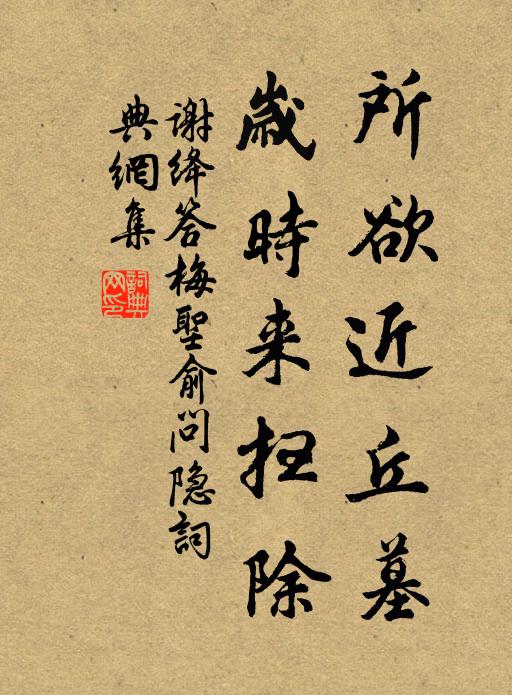 所欲近丘墓
歲時来扫除
谢绛答梅聖俞问隐詞
典網集
詞典
网印